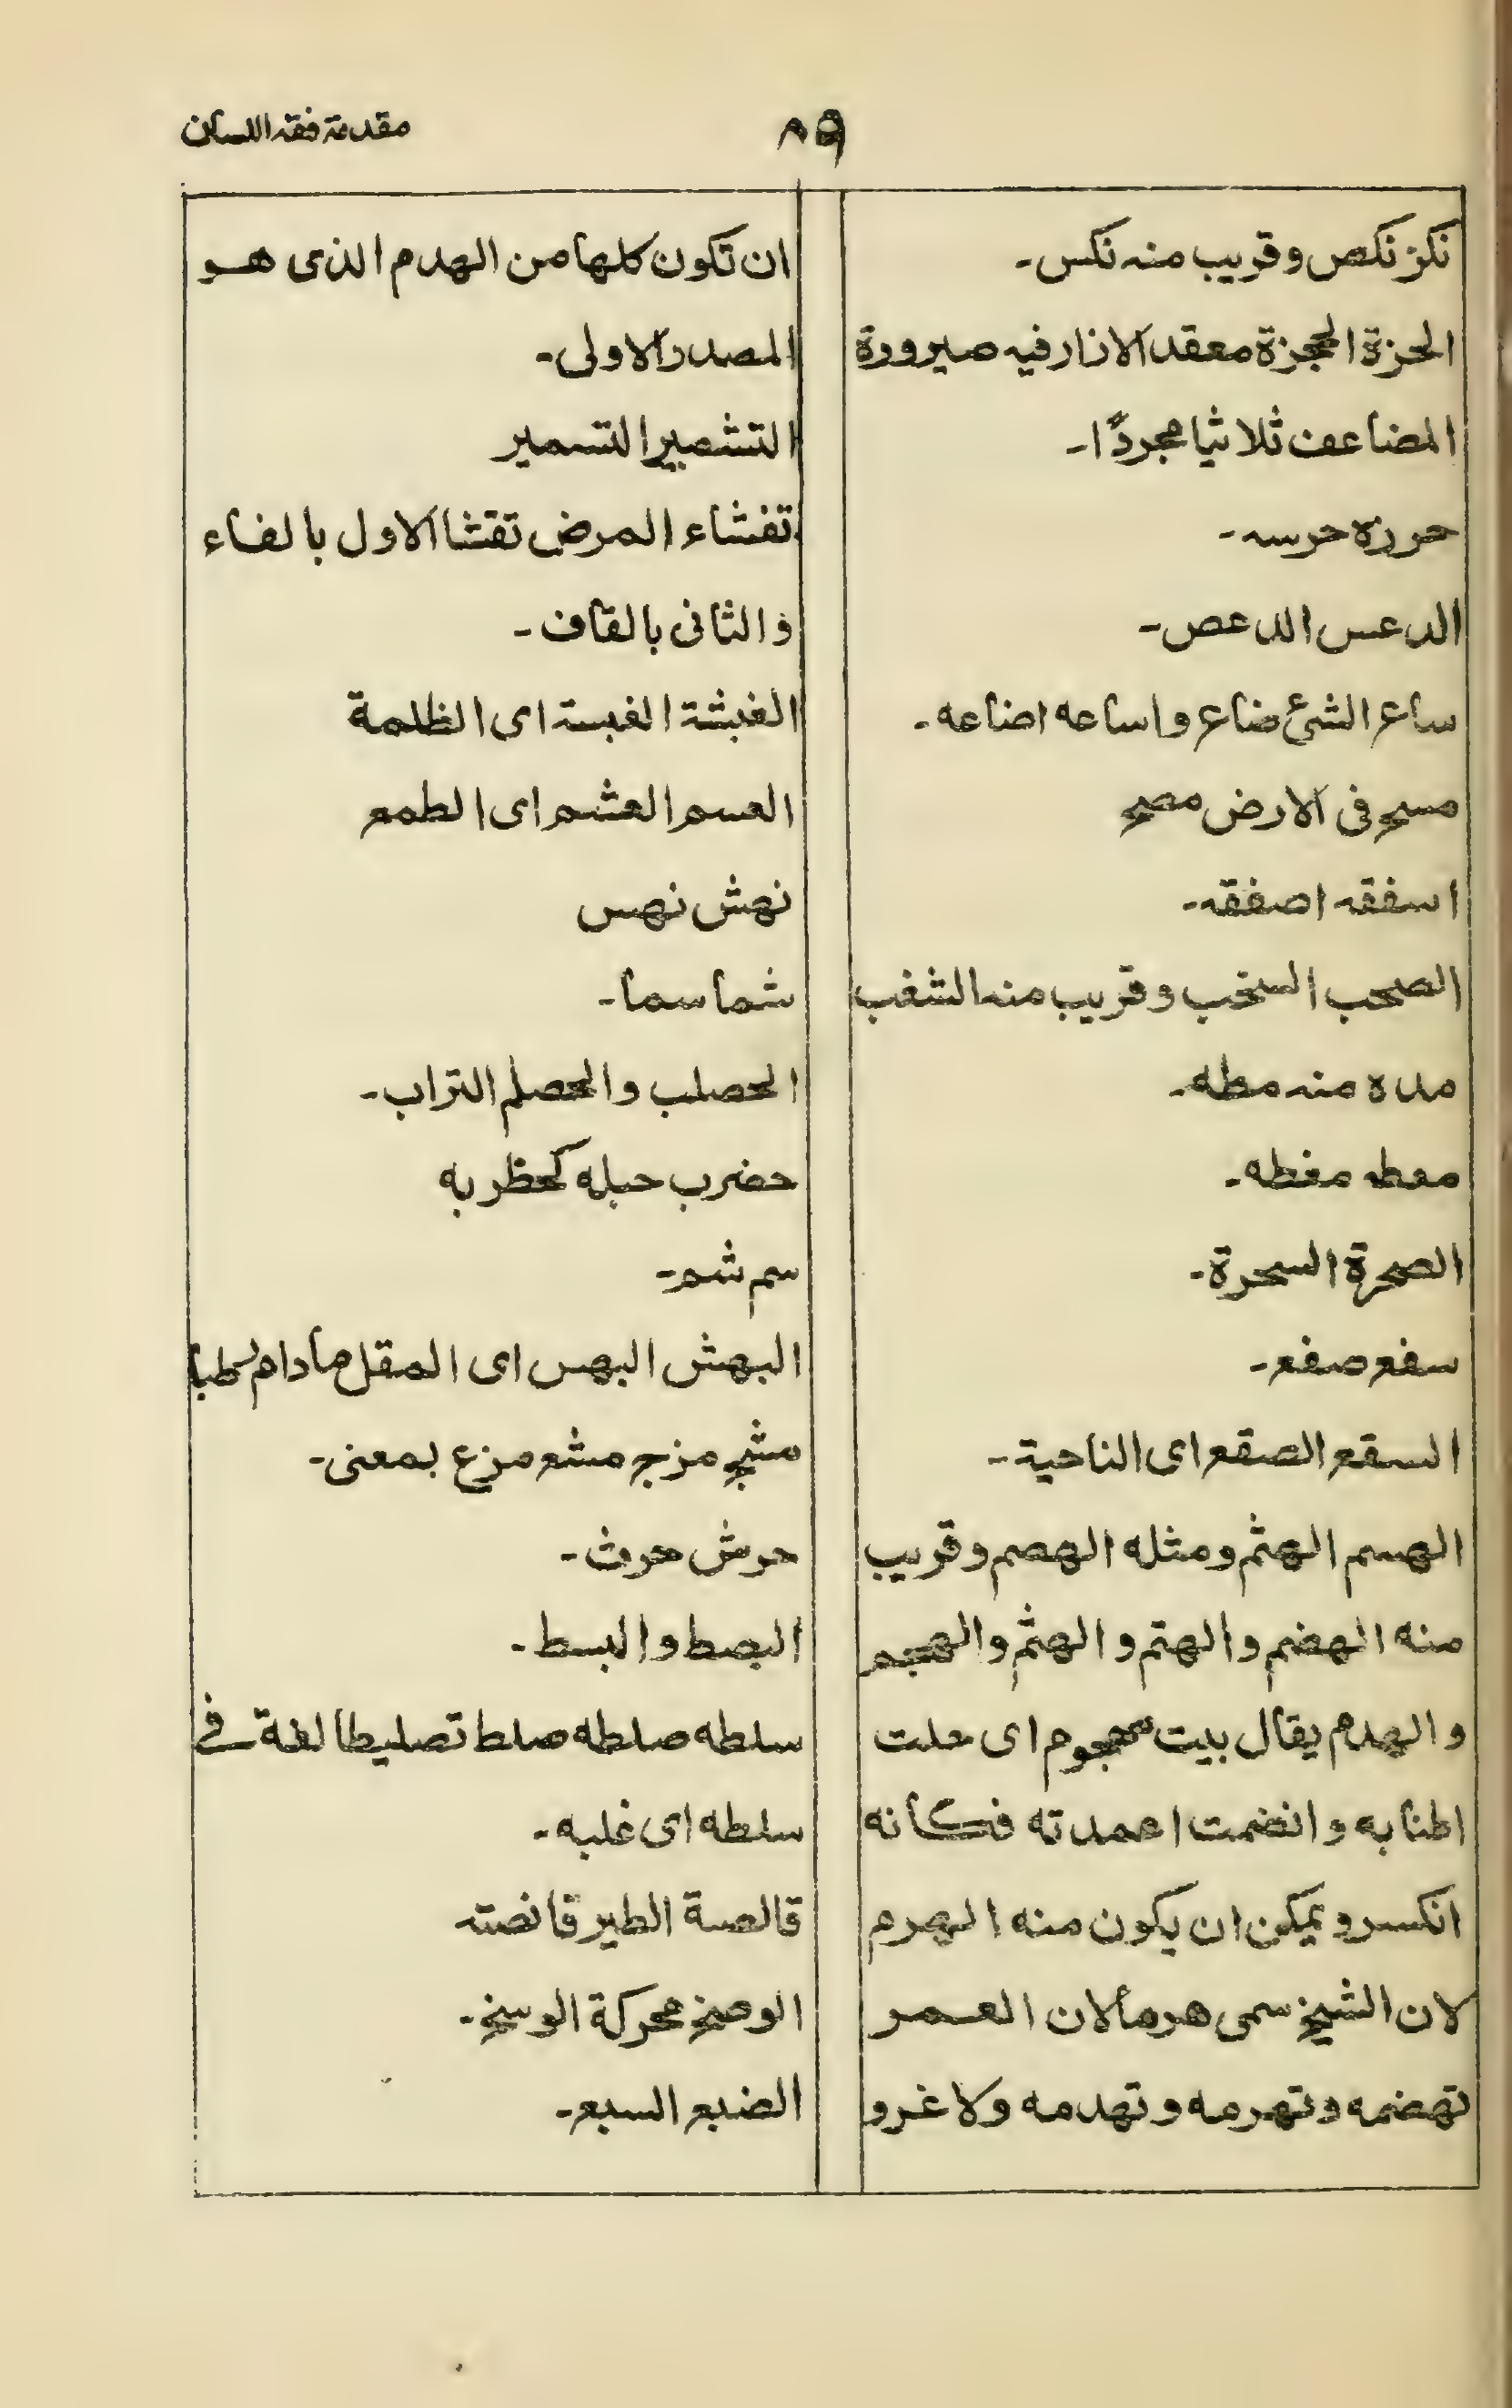 مقدمة فقه اللسان
٨٩
نكز نكص وقريب منه نكس۔
الحزة الحجزة معقد الازار فيه صيرورة
المضاعف ثلاثيا مجردًا۔
حرزه حرسه۔
الدعس الدعص۔
ساع الشئ ضاع واساعه اضاعه۔
مسح فى الارض مصح
اسفقه اصفقه۔
الصخب السخب وقريب منه الشغب
مده منه مطه۔
معطه مغطه۔
الصحرة السحرة۔
سفع صفع۔
السقع الصقع اى الناحية۔
الهسم الهثم ومثله الهصم وقريب
منه الهضم والهتم والهثم والهجم
والهدم يقال بيت مهجوم اى حلت
اطنابه وانضمت اعمدته فكانه
انكسر ويمكن ان يكون منه الهرم
لان الشيخ سمى هرما لان العمر
تهضمه وتهرمه وتهدمه ولا غرو
ان تكون كلها من الهدم الذى هو
المصدر الاولى۔
التشمير التسمير
تفشاء المرض تقشا الاول بالفاء
والثانى بالقاف۔
الغبشة الغبسة اى الظلمة
العسم العشم اى الطمع
نهش نهس
شما سما۔
الحصلب والحصلم التراب۔
حضرب حبله كحظربه
سم شم۔
البهش البهس اى المقل مادام رطبا
مشج مزج مشع مزع بمعنى۔
حرش حرث۔
البصط والبسط۔
سلطه صلطه صلط تصليطا لغة فى
سلطه اى غلبه۔
قالصة الطير قانصته
الوصخ محركة الوسخ۔
الضبع السبع۔